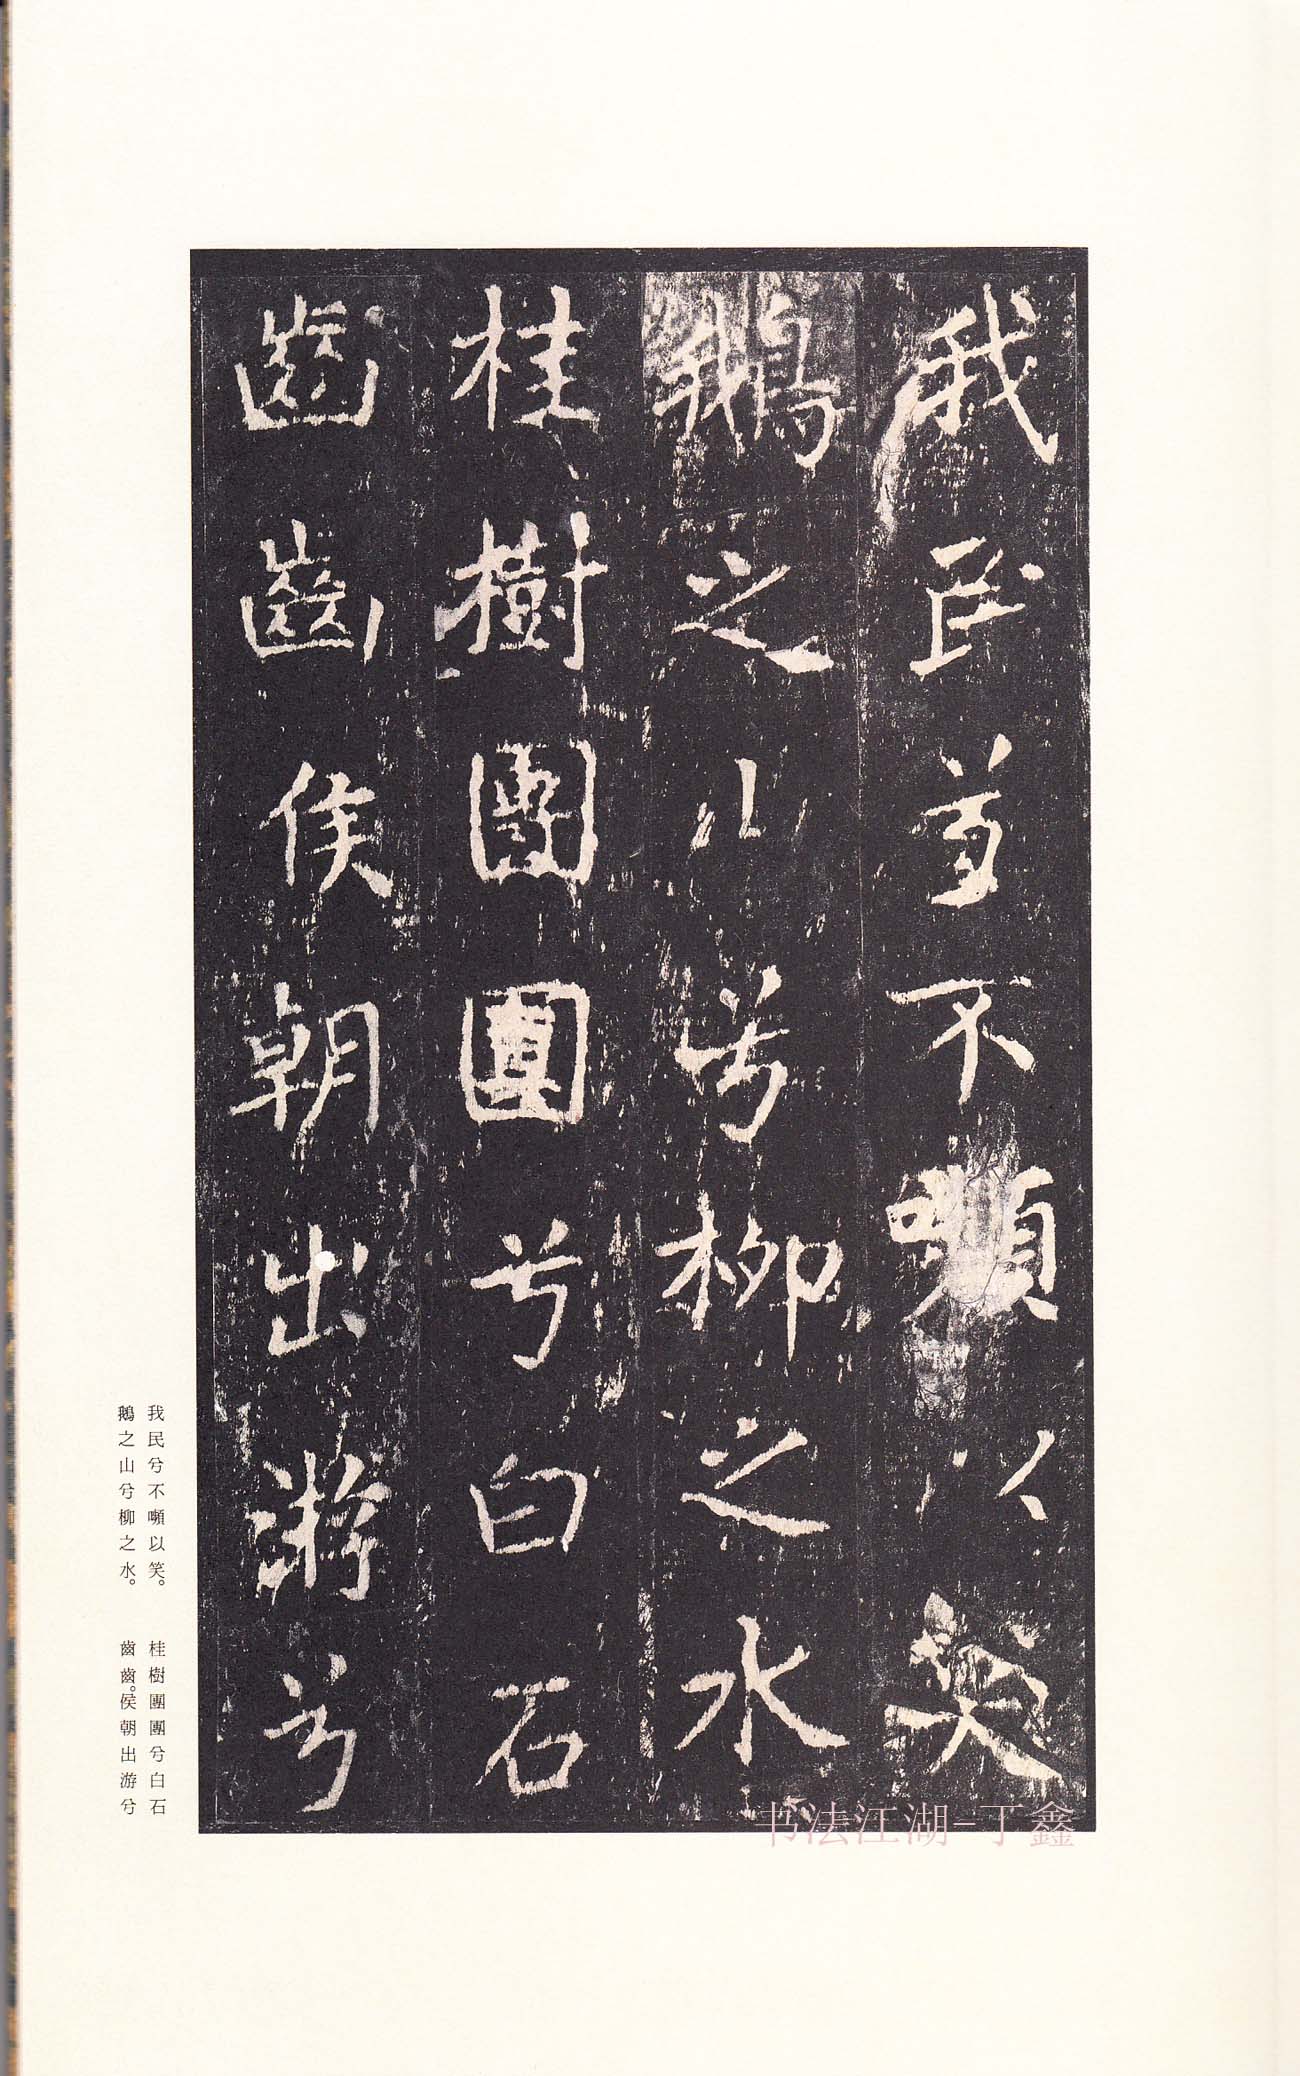 我民兮不嚬以笑
鵝之山兮柳之水
桂樹團團兮白石
齒齒侯朝出游兮
我民兮不嚬以笑。
鵝之山兮柳之水。
桂樹團團兮白石
齒齒。侯朝出游兮
书法江湖-丁鑫